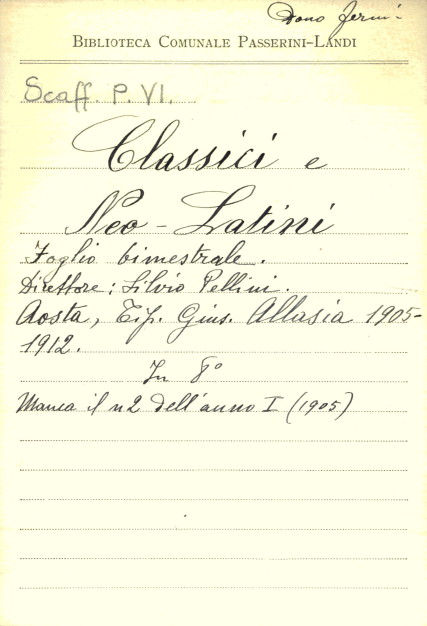 Dono Fermi
BIBLIOTECA COMUNALE PASSERINI-LANDI
Scaff. P. VI.
Classici e
Neo-Latini
Foglio bimestrale.
Direttore: Silvio Pellini.
Aosta, Tip. Gius. Allasia 1905-
1912.
In 8°
Manca il n 2 dell'anno I (1905)